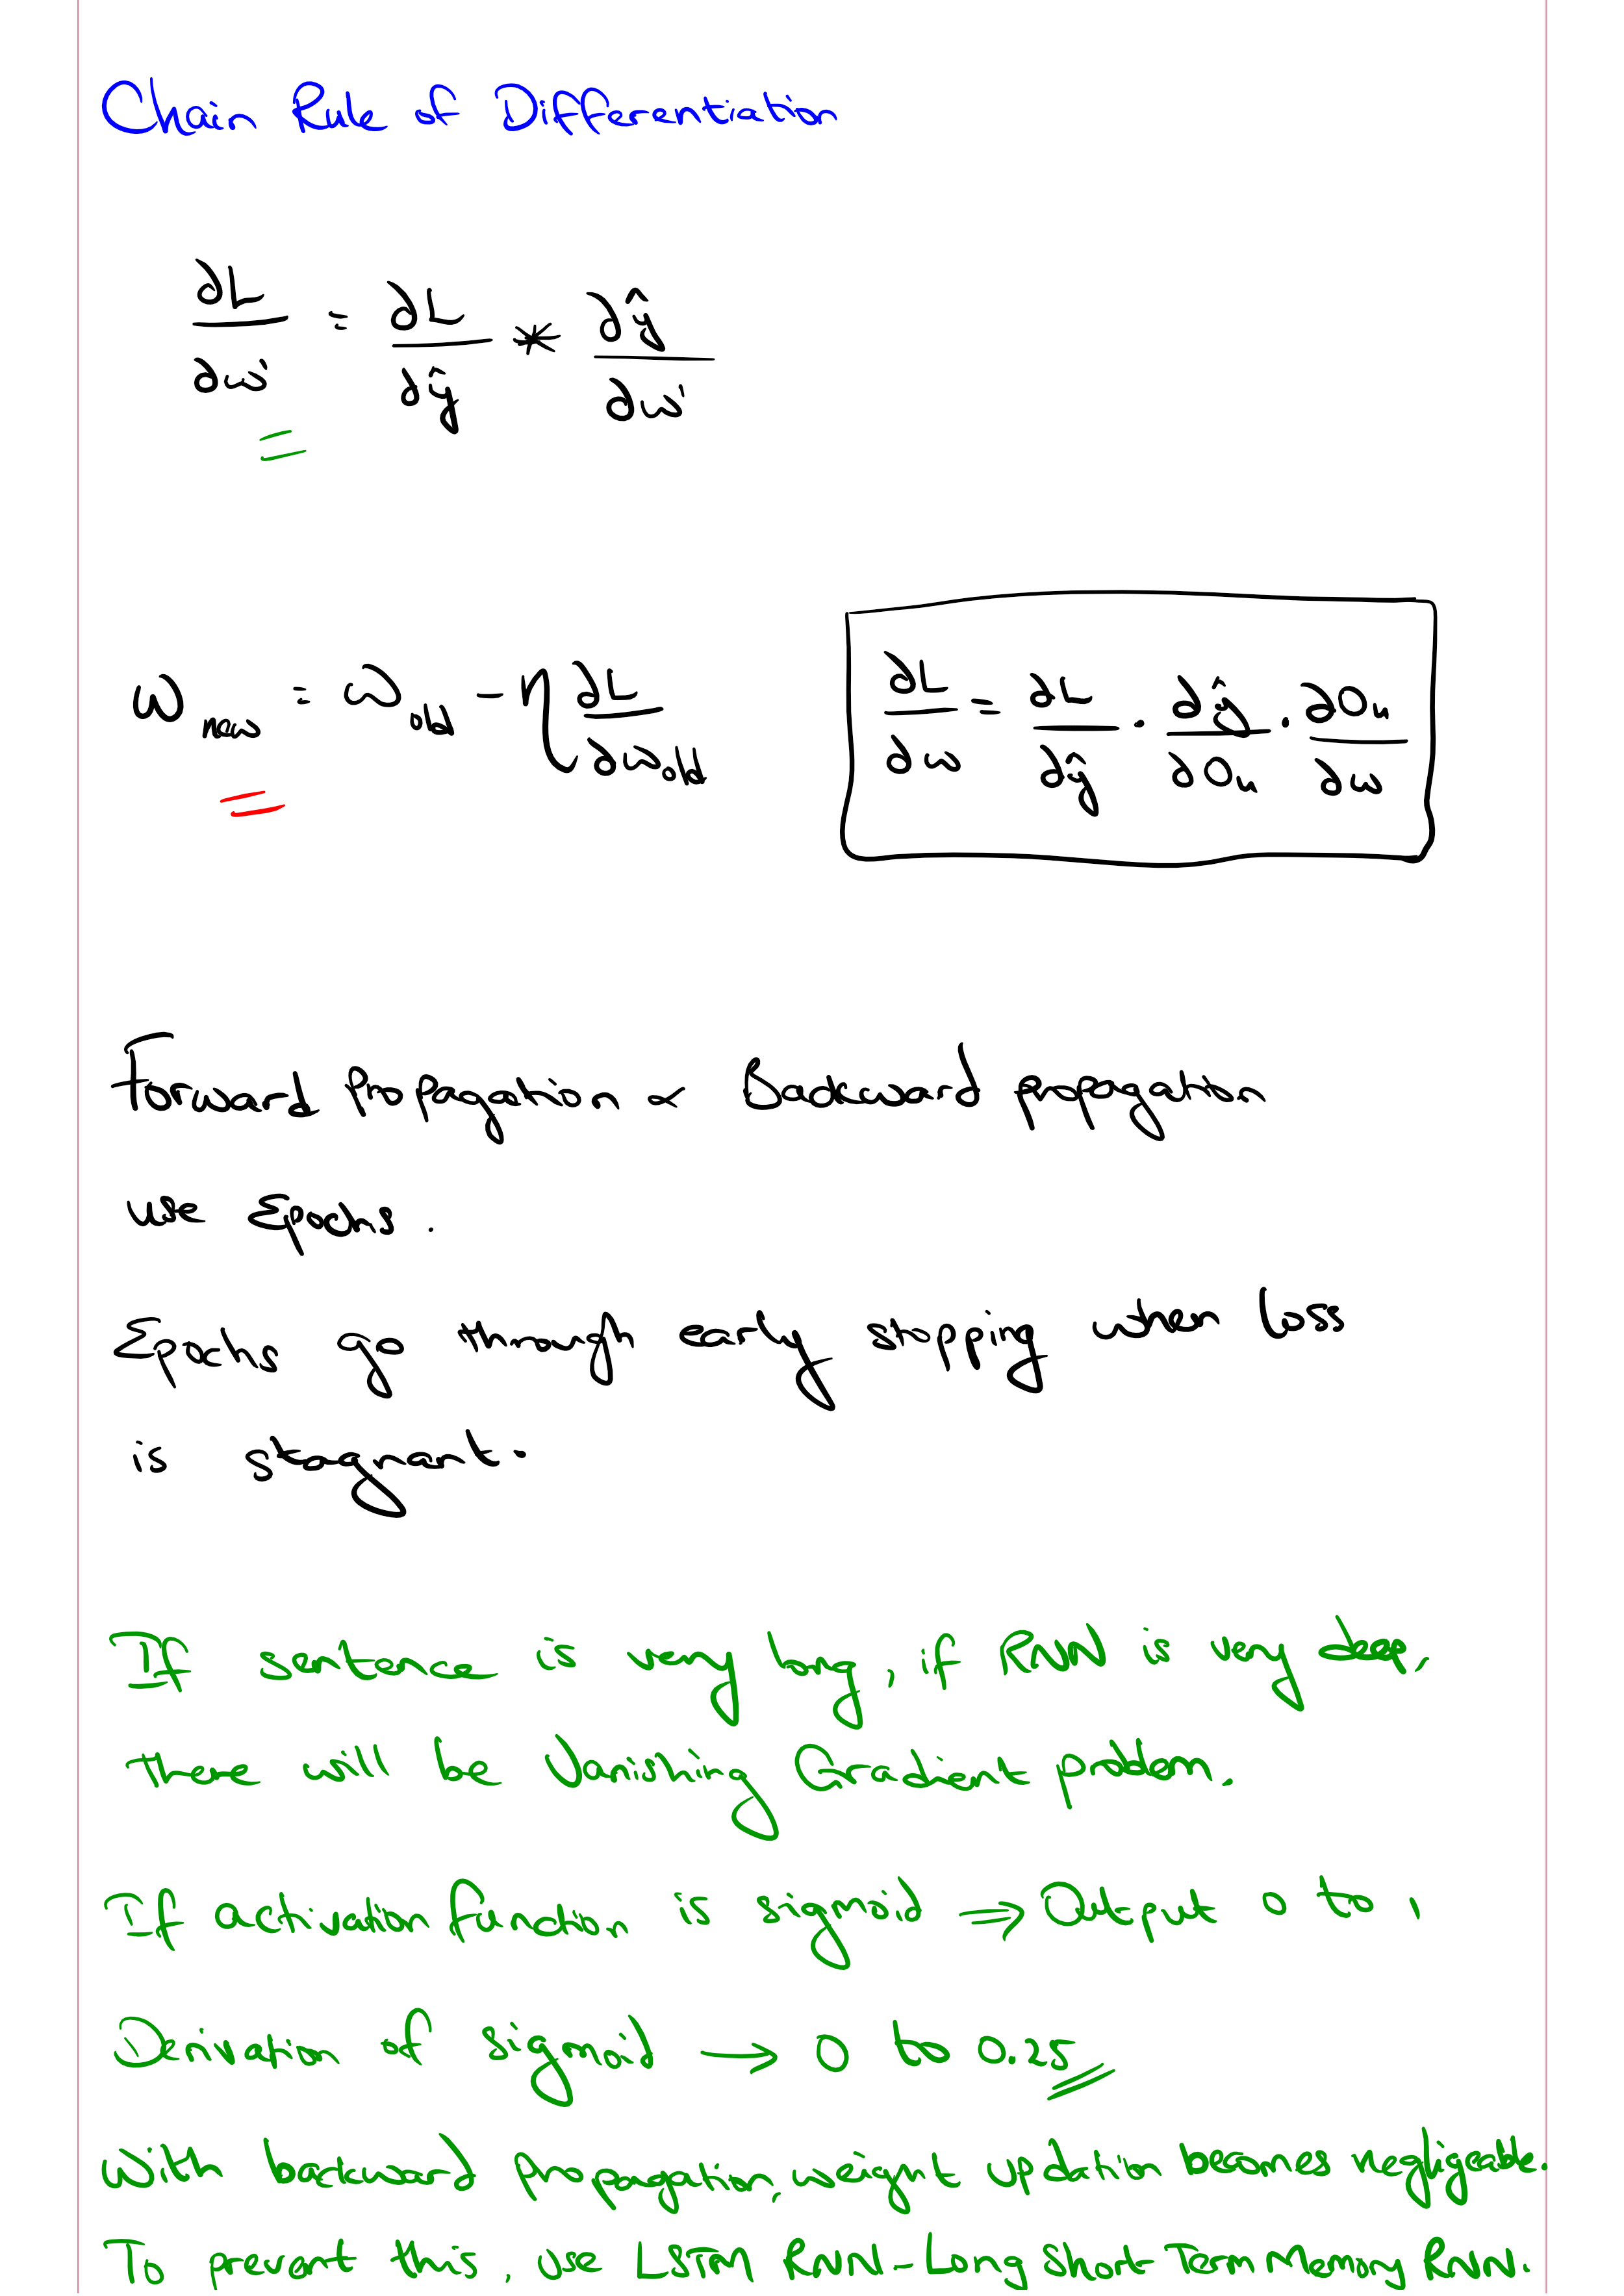 Chain Rule of Differentiation
∂L/∂w' = ∂L/∂ŷ * ∂ŷ/∂w'
w_new = w_old - η ∂L/∂w_old
∂L/∂w = ∂L/∂ŷ . ∂ŷ/∂O_n . ∂O_n/∂w
Forward Propagation ∝ Backward propagation
use Epochs.
Epochs go through early stopping when loss
is stagnant.
If sentence is very long, if RNN is very deep,
there will be Vanishing Gradient problem.
If activation function is sigmoid ⇒ Output 0 to 1
Derivation of sigmoid → 0 to 0.25
With backward propagation, weight updation becomes negligeable.
To prevent this, use LSTM RNN - Long Short Term Memory RNN.